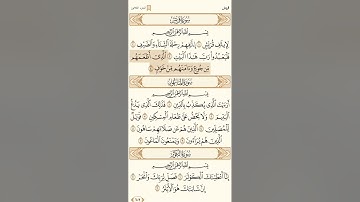 سُورَةُ قُرَيْشٍ
بِسْمِ ٱللَّهِ ٱلرَّحْمَٰنِ ٱلرَّحِيمِ
لِإِيلَٰفِ قُرَيْشٍ ١ إِۦلَٰفِهِمْ رِحْلَةَ ٱلشِّتَآءِ وَٱلصَّيْفِ ٢
فَلْيَعْبُدُوا۟ رَبَّ هَٰذَا ٱلْبَيْتِ ٣ ٱلَّذِىٓ أَطْعَمَهُم
مِّن جُوعٍ وَءَامَنَهُم مِّنْ خَوْفٍۭ ٤
سُورَةُ المَاعُونِ
بِسْمِ ٱللَّهِ ٱلرَّحْمَٰنِ ٱلرَّحِيمِ
أَرَءَيْتَ ٱلَّذِى يُكَذِّبُ بِٱلدِّينِ ١ فَذَٰلِكَ ٱلَّذِى يَدُعُّ
ٱلْيَتِيمَ ٢ وَلَا يَحُضُّ عَلَىٰ طَعَامِ ٱلْمِسْكِينِ ٣ فَوَيْلٌ
لِّلْمُصَلِّينَ ٤ ٱلَّذِينَ هُمْ عَن صَلَاتِهِمْ سَاهُونَ ٥
ٱلَّذِينَ هُمْ يُرَآءُونَ ٦ وَيَمْنَعُونَ ٱلْمَاعُونَ ٧
سُورَةُ الكَوْثَرِ
بِسْمِ ٱللَّهِ ٱلرَّحْمَٰنِ ٱلرَّحِيمِ
إِنَّآ أَعْطَيْنَٰكَ ٱلْكَوْثَرَ ١ فَصَلِّ لِرَبِّكَ وَٱنْحَرْ ٢
إِنَّ شَانِئَكَ هُوَ ٱلْأَبْتَرُ ٣